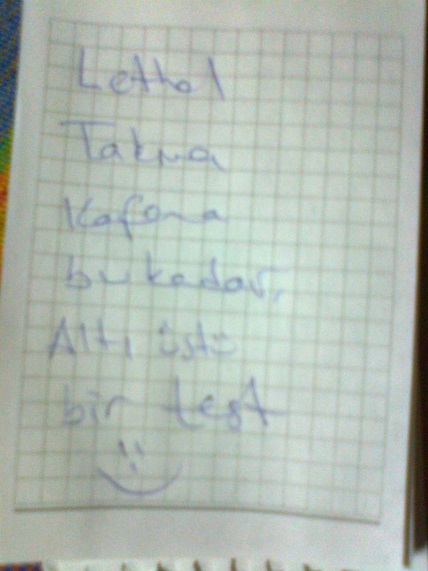 Lethal
Takma
Kafana
bu kadar,
Altı üstü
bir test